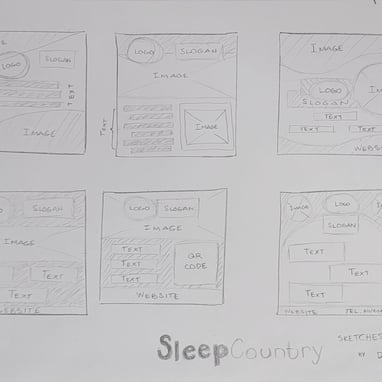 LOGO
SLOGAN
TEXT
IMAGE
LOGO
SLOGAN
IMAGE
TEXT
IMAGE
IMAGE
LOGO
SLOGAN
TEXT
TEXT
TEXT
SLOGAN
IMAGE
TEXT
TEXT
WEBSITE
LOGO
SLOGAN
IMAGE
TEXT
TEXT
TEXT
QR
CODE
WEBSITE
LOGO
SLOGAN
TEXT
TEXT
TEXT
WEBSITE
SleepCountry
SKETCHES
BY